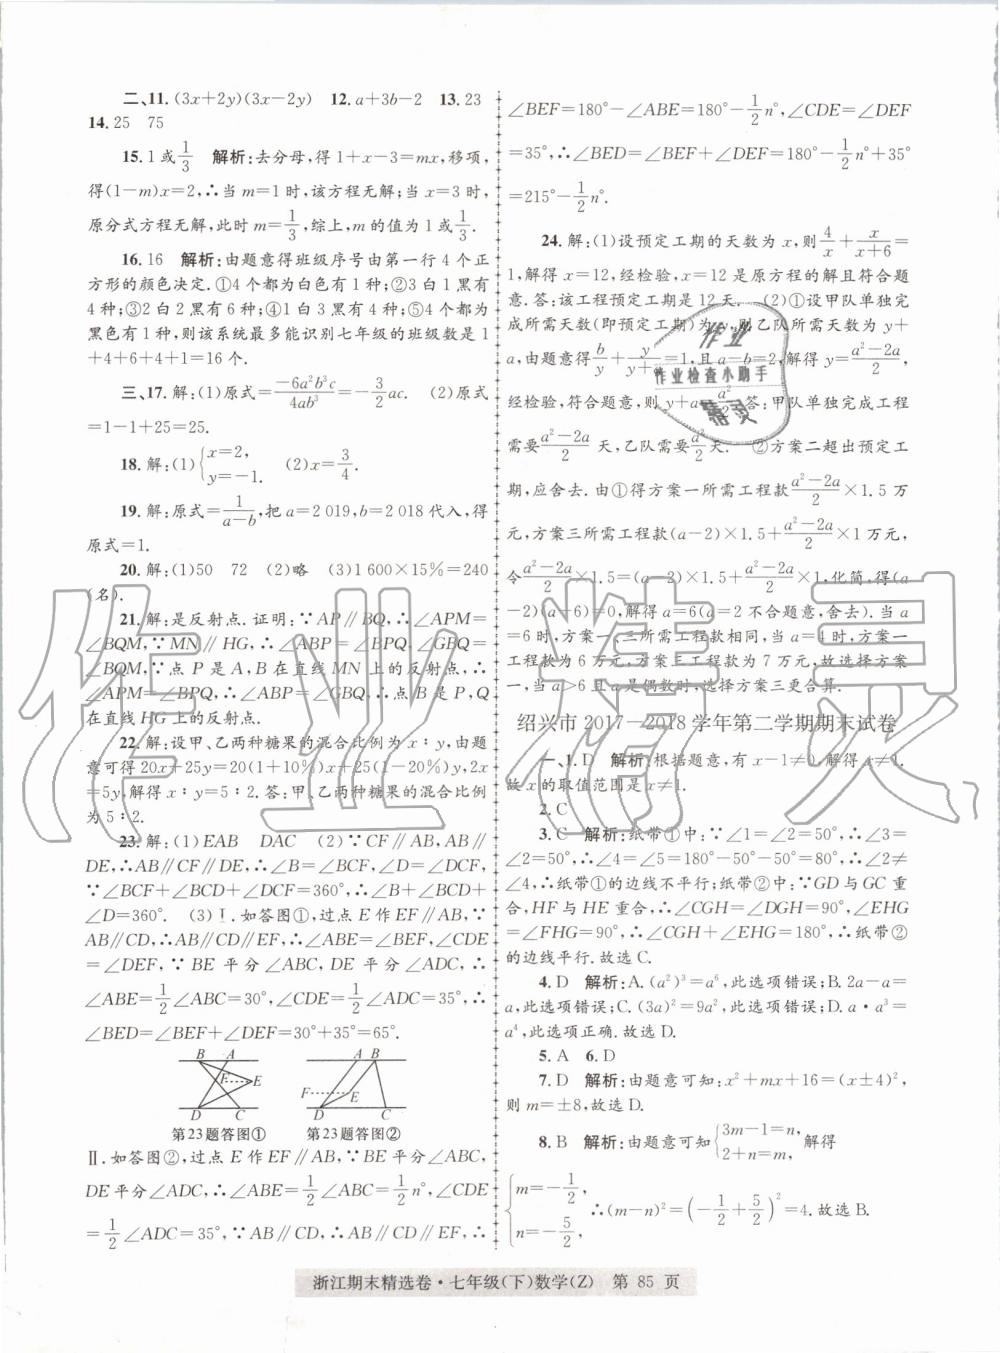 二、11.(3x+2y)(3x-2y)  12.a+3b-2  13.23
14.25  75
15.1或1/3  解析:去分母,得1+x-3=mx,移项,
得(1-m)x=2,∴当m=1时,该方程无解;当x=3时,
原分式方程无解,此时m=1/3,综上,m的值为1或1/3.
16.16  解析:由题意得班级序号由第一行4个正
方形的颜色决定.①4个都为白色有1种;②3白1黑有
4种;③2白2黑有6种;④1白3黑有4种;⑤4个都为
黑色有1种,则该系统最多能识别七年级的班级数是1
+4+6+4+1=16个.
三、17.解:(1)原式=-6a²b³c/4ab³=-3/2ac.  (2)原式
=1-1+25=25.
18.解:(1){x=2, y=-1.  (2)x=3/4.
19.解:原式=1/(a-b),把a=2 019,b=2 018代入,得
原式=1.
20.解:(1)50  72  (2)略  (3)1 600×15%=240
(名).
21.解:是反射点.证明:∵AP∥BQ,∴∠APM=
∠BQM,∵MN∥HG,∴∠ABP=∠BPQ,∠GBQ=
∠BQM,∵点P是A,B在直线MN上的反射点,∴
∠APM=∠BPQ,∴∠ABP=∠GBQ,∴点B是P,Q
在直线HG上的反射点.
22.解:设甲、乙两种糖果的混合比例为x∶y,由题
意可得20x+25y=20(1+10%)x+25(1-20%)y,2x
=5y,解得x∶y=5∶2.答:甲、乙两种糖果的混合比例
为5∶2.
23.解:(1)EAB  DAC  (2)∵CF∥AB,AB∥
DE,∴AB∥CF∥DE,∴∠B=∠BCF,∠D=∠DCF,
∵∠BCF+∠BCD+∠DCF=360°,∴∠B+∠BCD+
∠D=360°.  (3)Ⅰ.如答图①,过点E作EF∥AB,∵
AB∥CD,∴AB∥CD∥EF,∴∠ABE=∠BEF,∠CDE
=∠DEF,∵BE平分∠ABC,DE平分∠ADC,∴
∠ABE=1/2∠ABC=30°,∠CDE=1/2∠ADC=35°,∴
∠BED=∠BEF+∠DEF=30°+35°=65°.
B A
F E
D C
A B
F E
D C
第23题答图①  第23题答图②
Ⅱ.如答图②,过点E作EF∥AB,∵BE平分∠ABC,
DE平分∠ADC,∴∠ABE=1/2∠ABC=1/2n°,∠CDE
=1/2∠ADC=35°,∵AB∥CD,∴AB∥CD∥EF,∴
∠BEF=180°-∠ABE=180°-1/2n°,∠CDE=∠DEF
=35°,∴∠BED=∠BEF+∠DEF=180°-1/2n°+35°
=215°-1/2n°.
24.解:(1)设预定工期的天数为x,则4/x+x/(x+6)=
1,解得x=12,经检验,x=12是原方程的解且符合题
意.答:该工程预定工期是12天.  (2)①设甲队单独完
成所需天数(即预定工期)为y,则乙队所需天数为y+
a,由题意得b/y+y/(y+a)=1,且a-b=2,解得y=(a²-2a)/2,
经检验,符合题意,则y+a=a²/2.答:甲队单独完成工程
需要(a²-2a)/2天,乙队需要a²/2天.  ②方案二超出预定工
期,应舍去.由①得方案一所需工程款(a²-2a)/2×1.5万
元,方案三所需工程款(a-2)×1.5+(a²-2a)/2×1万元,
令(a²-2a)/2×1.5=(a-2)×1.5+(a²-2a)/2×1,化简,得(a
-2)(a-6)=0,解得a=6(a=2不合题意,舍去).当a
=6时,方案一、三所需工程款相同,当a=4时,方案一
工程款为6万元,方案三工程款为7万元,故选择方案
一,当a>6且a是偶数时,选择方案三更合算.
绍兴市2017—2018学年第二学期期末试卷
一、1.D  解析:根据题意,有x-1≠0,解得x≠1.
故x的取值范围是x≠1.
2.C
3.C  解析:纸带①中:∵∠1=∠2=50°,∴∠3=
∠2=50°,∴∠4=∠5=180°-50°-50°=80°,∴∠2≠
∠4,∴纸带①的边线不平行;纸带②中:∵GD与GC重
合,HF与HE重合,∴∠CGH=∠DGH=90°,∠EHG
=∠FHG=90°,∴∠CGH+∠EHG=180°,∴纸带②
的边线平行.故选C.
4.D  解析:A.(a²)³=a⁶,此选项错误;B.2a-a=
a,此选项错误;C.(3a)²=9a²,此选项错误;D.a·a³=
a⁴,此选项正确.故选D.
5.A  6.D
7.D  解析:由题意可知:x²+mx+16=(x±4)²,
则m=±8,故选D.
8.B  解析:由题意可知{3m-1=n, 2+n=m,解得
{m=-1/2, n=-5/2, ∴(m-n)²=(-1/2+5/2)²=4.故选B.
浙江期末精选卷·七年级(下)数学(Z)  第85页
作业
作业检查小助手
精灵
作业精灵